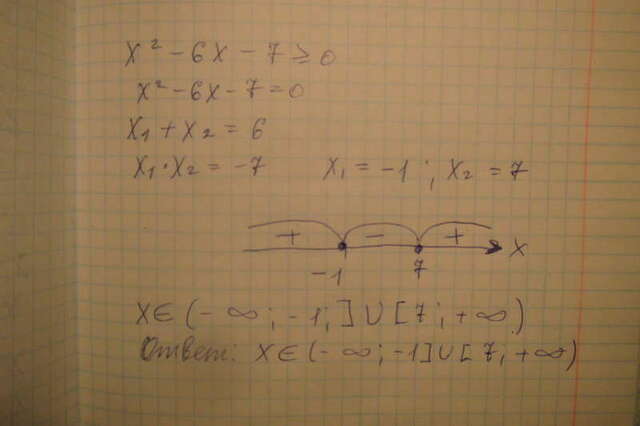 x² - 6x - 7 ≥ 0
x² - 6x - 7 = 0
x₁ + x₂ = 6
x₁ · x₂ = -7 x₁ = -1 ; x₂ = 7
+ - + x
-1 7
x ∈ (- ∞ ; -1;] ∪ [7 ; + ∞)
Ответ: x ∈ (- ∞ ; -1] ∪ [7; + ∞)